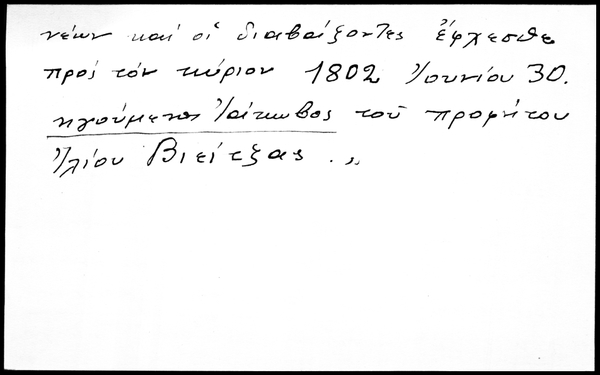 νέων καί οἱ διαβαίζοντες ἔφχεσθε
πρός τόν κύριον 1802 Ἰουνίου 30.
ηγούμενος Ἰάκωβος τοῦ προφήτου
Ἠλίου Βιείτζας . „